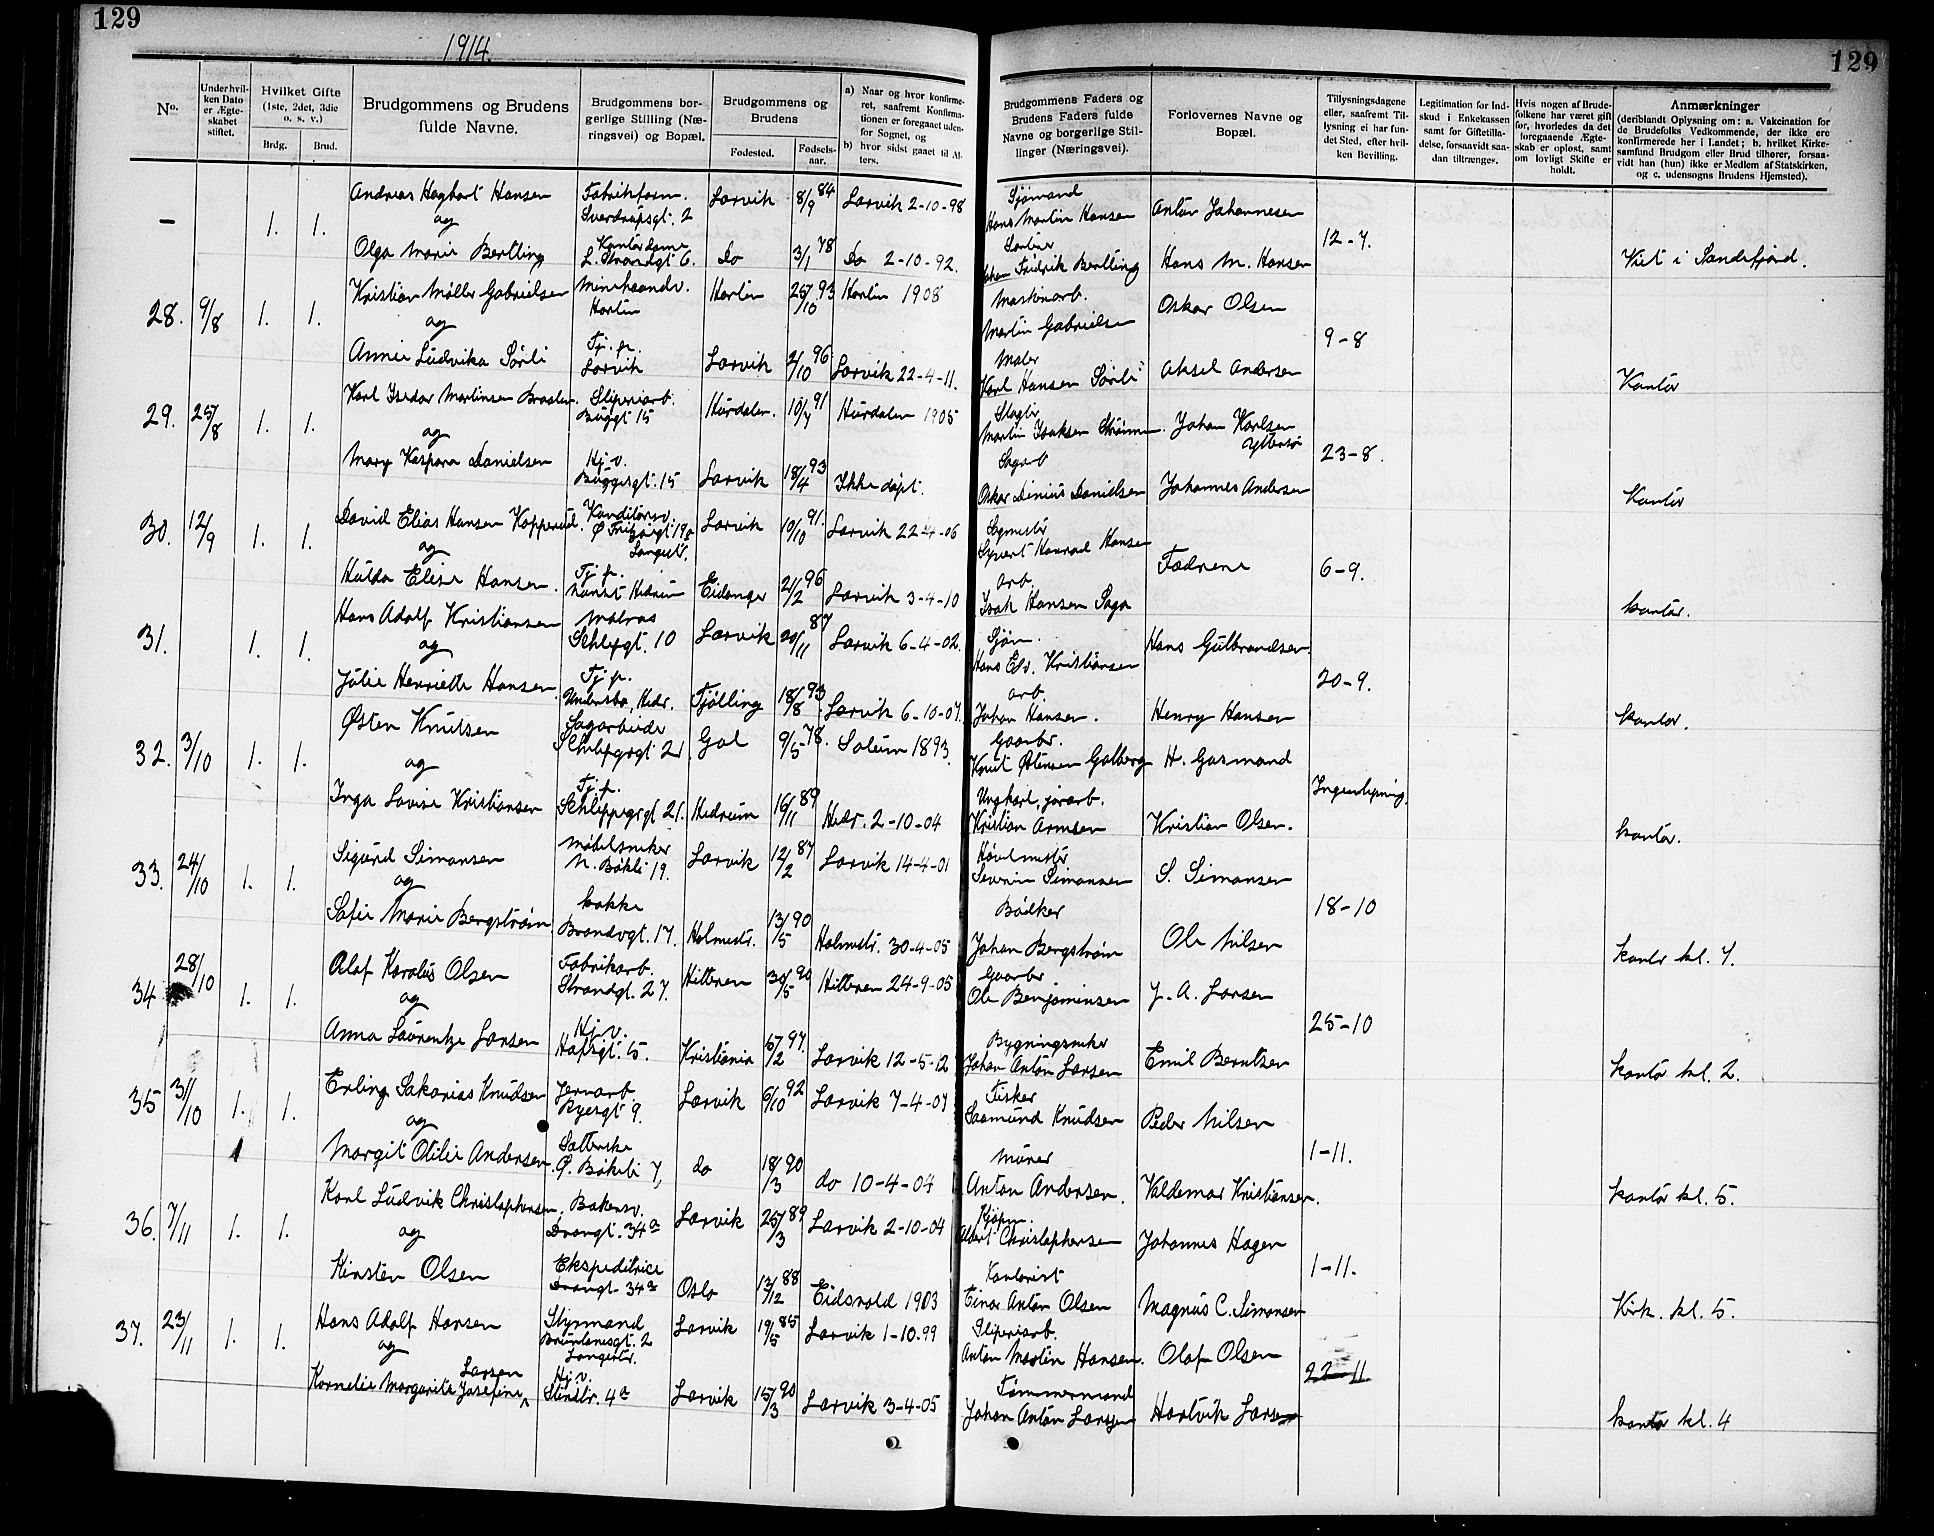 129
129
1914.
No.
Under hvilken Dato er Ægteskabet stiftet.
Hvilket Gifte (1ste, 2det, 3die o. s. v.)
Brdg.
Brud.
Brudgommens og Brudens fulde Navne.
Brudgommens borgerlige Stilling (Næringsvei) og Bopæl.
Brudgommens og Brudens
Fødested.
Fødselsaar.
a) Naar og hvor konfirmeret, saafremt Konfirmationen er foregaaet udenfor Sognet, og
b) hvor sidst gaaet til Alters.
Brudgommens Faders og Brudens Faders fulde Navne og borgerlige Stillinger (Næringsvei).
Forlovernes Navne og Bopæl.
Tillysningsdagene eller, saafremt Tillysning ei har fundet Sted, efter hvilken Bevilling.
Legitimation for Indskud i Enkekassen samt for Giftetilladelse, forsaavidt saadan tiltrænges.
Hvis nogen af Brudefolkene har været gift før, hvorledes da det foregaaende Ægteskab er opløst, samt om lovligt Skifte er holdt.
Anmærkninger
(deriblandt Oplysning om: a. Vakcination for de Brudefolks Vedkommende, der ikke ere konfirmerede her i Landet; b. hvilket Kirkesamfund Brudgom eller Brud tilhører, forsaavidt han (hun) ikke er Medlem af Statskirken, og c. udensogns Brudens Hjemsted).
— 1. 1. Andreas Hagbart Hansen Fabrikform. Sverdrupsgt. 2 Larvik 8/9 84 Larvik 2-10-98 Sjømand Hans Martin Hansen Anton Johannesen
og
12-7.
Olga Marie Bertling Kontordame L. Strandgt 6. Do 3/1 78 Do 2-10-92. Fredrik Bertling Hans M. Hansen Viet i Sandefjord.
28. 9/8 1. 1. Kristian Møller Gabrielsen Minehaandv. Horten 25/10 93 Horten 1908 Maskinarb. Martin Gabrielsen Oskar Olsen
og
9-8
Annie Ludvika Sørli Tj. p. Larvik Larvik 2/10 96 Larvik 22-4-11. Maler Karl Hansen Sørli Aksel Andersen Kontor
29. 25/8 1. 1. Karl Isedor Martinsen Sliperiarb. Buggt 15 Hurdalen. 10/7 91 Hurdalen 1905 Slagter Martin Isaksen Johan Karlsen
og
23-8.
Mary Kaspara Danielsen Hj. v. Buggesgt. 15 Larvik 18/4 93 Ikke døpt. Sagarb Oskar Dinius Danielsen Johannes Andersen Kontor
30. 12/9 1. 1. David Elias Hansen Kopperud Konditorsv. Langestr. Larvik 10/10 91. Larvik 22-4-06 Sagmester Syvert Konrad Hansen
og
Fædrene 6-9.
Hulda Elise Hansen. Tj. p. Eidanger 21/2 96 Larvik 3-4-10 Arb. Isak Hansen Saga kontor.
31. 1. 1. Hans Adolf Kristiansen Matros Schlepgt. 10 Larvik 20/11 87 Larvik 6-4-02. Sjøm. Hans Edv. Kristiansen Hans Gulbrandsen
og
20-9.
Julie Henriette Hansen Tj. p. Hedr. Tjølling 18/8 93. Larvik 6-10-07. arb. Johan Hansen. Henry Hansen kontor.
32. 3/10 1. 1. Østen Knutsen Sagarbeider 21 Gol 9/5 78. Solum 1893. Gaarbr. Knut Østensen Golberg H. Gasmand
og
Inga Lovise Kristiansen Tj. p. Schleppegrgt 21. Hedrum 16/11 89 Hedr. 2-10-04 Ungkarl, jorarb. Kristian Armsen Kristian Olsen. kontor.
33. 24/10 1. 1. Sigurd Simonsen Møbelsnker N. Bøkli 19. Larvik 12/2 87 Larvik 14-4-01 Høvelmester Severin Simonsen S. Simonsen
og
18-10
Sofie Marie Bergstrøm kokke Brandvgt. 17. Holmestr. 13/5 90 Holmestr. 30-4-05 Bødker Johan Bergstrøm Ole Nilsen kontor kl. 7.
34 28/10 1. 1. Olaf Karolius Olsen Fabrikarb. Strandgt. 27. Hitteren 30/5 90 Hitteren 24-9-05 Gaarbr Ole Benjaminsen J. A. Larsen
og
25-10
Anna Laurentze Larsen Hj. v. Hafsgt. 5. Kristiania 5/2 97. Larvik 12-5-12 Bygningsnker Johan Anton Larsen Emil Berntsen kontor kl. 2.
35 31/10 1. 1. Erling Sakarias Knudsen Jernarb. Ryesgt 9. Larvik 6/10 92 Larvik 7-4-07 Fisker Saamund Knudsen Peder Nilsen
og
1-11.
Margit Otilie Andersen Ø. Bøkeli 7, do 18/3 90 do 10-4-04 Murer Anton Andersen. Valdemar Kristiansen. kontor kl. 5.
36. 7/11 1. 1. Karl Ludvik Christophersen. Bakersv. Drangt. 34a Larvik 25/3 89 Larvik 2-10-04 Kjøpm. Albert Christophersen Johannes Hagen
og
1-11.
Kirsten Olsen Ekspeditrice Drangt. 34a Oslo 13/12 88 Eidsvold 1903 Kontorist Einar Anton Olsen Magnus C. Simonsen Kirk. kl. 5.
37. 23/11 1. 1. Hans Adolf Hansen Styrmand Langestr. Larvik 19/5 85 Larvik 1-10-99 Sliperiarb. Anton Martin Hansen. Olaf Olsen
og
22-11
Kornelie Margarite Josefine Larsen Hj. v. Stinstr. 4a Larvik 15/3 90 Larvik 3-4-05 Tømmermand Johan Anton Larsen Hartvik Larsen kontor kl. 4